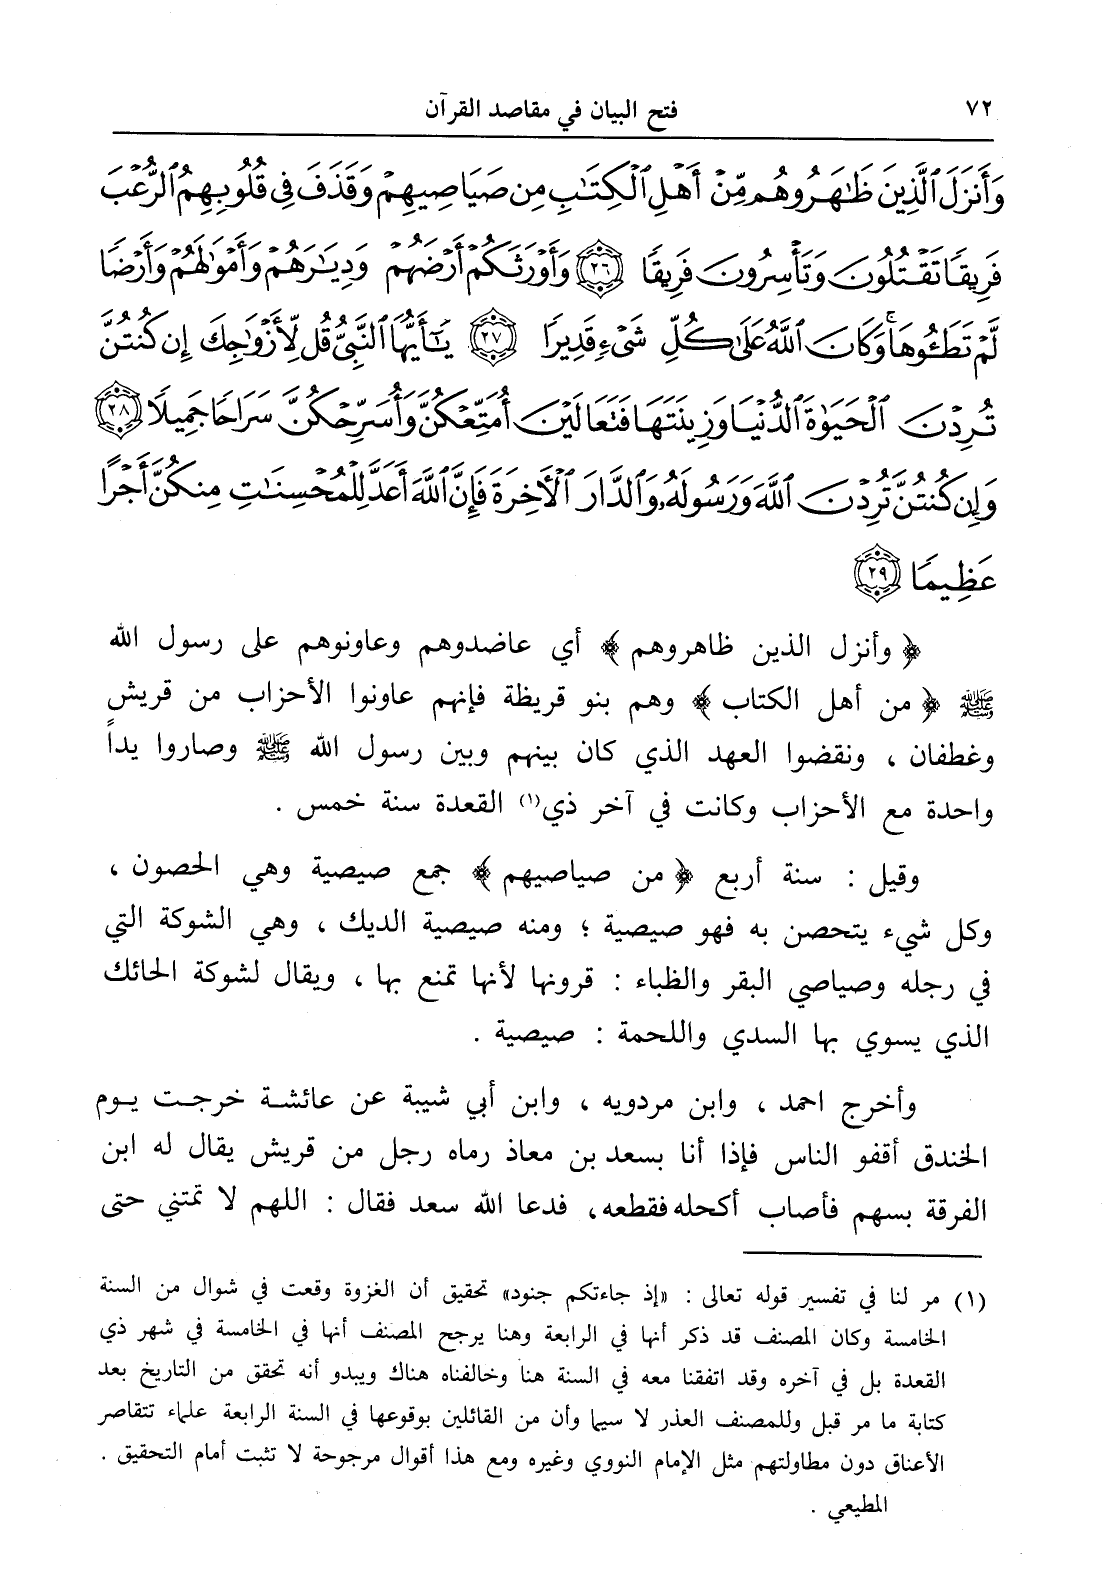 ٧٢ فتح البيان في مقاصد القرآن
وَأَنزَلَ ٱلَّذِينَ ظَٰهَرُوهُم مِّنْ أَهْلِ ٱلْكِتَٰبِ مِن صَيَاصِيهِمْ وَقَذَفَ فِى قُلُوبِهِمُ ٱلرُّعْبَ
فَرِيقًا تَقْتُلُونَ وَتَأْسِرُونَ فَرِيقًا ٢٦ وَأَوْرَثَكُمْ أَرْضَهُمْ وَدِيَٰرَهُمْ وَأَمْوَٰلَهُمْ وَأَرْضًا
لَّمْ تَطَـُٔوهَا ۚ وَكَانَ ٱللَّهُ عَلَىٰ كُلِّ شَىْءٍ قَدِيرًا ٢٧ يَٰٓأَيُّهَا ٱلنَّبِىُّ قُل لِّأَزْوَٰجِكَ إِن كُنتُنَّ
تُرِدْنَ ٱلْحَيَوٰةَ ٱلدُّنْيَا وَزِينَتَهَا فَتَعَالَيْنَ أُمَتِّعْكُنَّ وَأُسَرِّحْكُنَّ سَرَاحًا جَمِيلًا ٢٨
وَإِن كُنتُنَّ تُرِدْنَ ٱللَّهَ وَرَسُولَهُۥ وَٱلدَّارَ ٱلْأَخِرَةَ فَإِنَّ ٱللَّهَ أَعَدَّ لِلْمُحْسِنَٰتِ مِنكُنَّ أَجْرًا
عَظِيمًا ٢٩
﴿ وأنزل الذين ظاهروهم ﴾ أي عاضدوهم وعاونوهم على رسول الله
ﷺ ﴿ من أهل الكتاب ﴾ وهم بنو قريظة فإنهم عاونوا الأحزاب من قريش
وغطفان ، ونقضوا العهد الذي كان بينهم وبين رسول الله ﷺ وصاروا يداً
واحدة مع الأحزاب وكانت في آخر ذي(١) القعدة سنة خمس .
وقيل : سنة أربع ﴿ من صياصيهم ﴾ جمع صيصية وهي الحصون ،
وكل شيء يتحصن به فهو صيصية ؛ ومنه صيصية الديك ، وهي الشوكة التي
في رجله وصياصي البقر والظباء : قرونها لأنها تمنع بها ، ويقال لشوكة الحائك
الذي يسوي بها السدي واللحمة : صيصية .
وأخرج احمد ، وابن مردويه ، وابن أبي شيبة عن عائشة خرجت يوم
الخندق أقفو الناس فإذا أنا بسعد بن معاذ رماه رجل من قريش يقال له ابن
الفرقة بسهم فأصاب أكحله فقطعه، فدعا الله سعد فقال : اللهم لا تمتني حتى
(١) مر لنا في تفسير قوله تعالى : «إذ جاءتكم جنود» تحقيق أن الغزوة وقعت في شوال من السنة
الخامسة وكان المصنف قد ذكر أنها في الرابعة وهنا يرجح المصنف أنها في الخامسة في شهر ذي
القعدة بل في آخره وقد اتفقنا معه في السنة هنا وخالفناه هناك ويبدو أنه تحقق من التاريخ بعد
كتابة ما مر قبل وللمصنف العذر لا سيما وأن من القائلين بوقوعها في السنة الرابعة علماء تتقاصر
الأعناق دون مطاولتهم مثل الإمام النووي وغيره ومع هذا أقوال مرجوحة لا تثبت أمام التحقيق .
المطيعي .